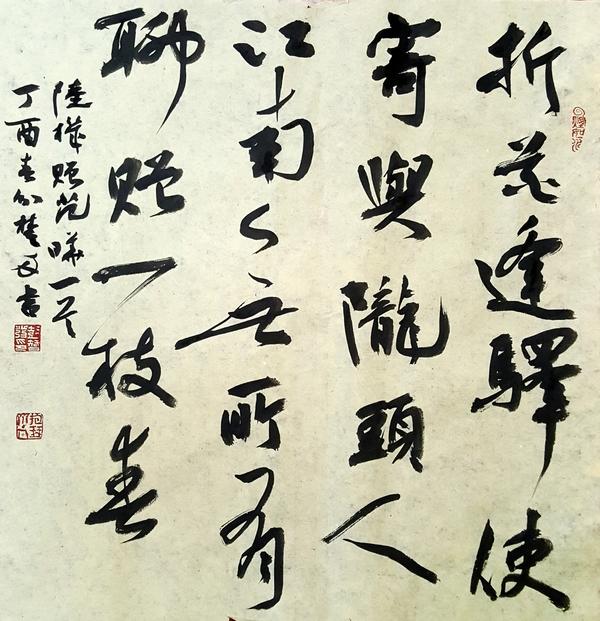 折花逢驛使
寄與隴頭人
江南無所有
聊贈一枝春
陸贈范曄一首
丁酉春分楚書